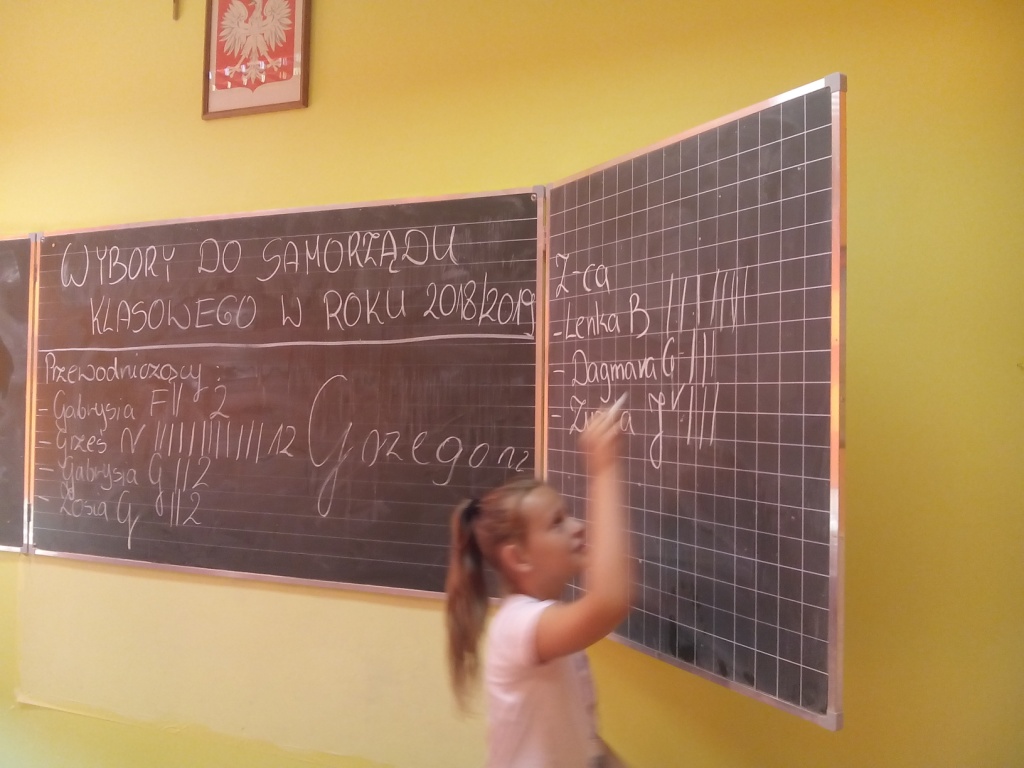 WYBORY DO SAMORZĄDU
KLASOWEGO W ROKU 2018/2019
Przewodniczący:
- Gabrysia F || 2
- Grześ N |||||||||||| 12
- Gabrysia G || 2
- Zosia G || 2
Grzegorz
Z-ca
- Lenka B ||||||||
- Dagmara G |||
- Zu a J ||||